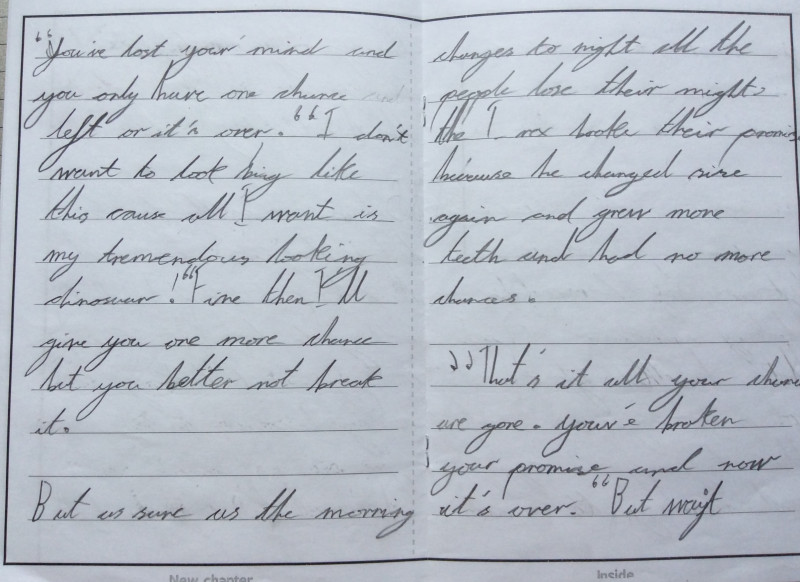 “You've lost your mind and
you only have one chance
left or it's over. “ I don't
want to look being like
this cause all I want is
my tremendous looking
dinosaur ! “ Fine then I'll
give you one more chance
but you better not break
it.
But as sure as the morning
changes to night all the
people lose their might,
the T rex broke their promise
because he changed size
again and grew more
teeth and had no more
chances.
„ That's it all your
are gone. you'v'e broken
your promise and now
it's over. “ But wait
New chapter
Inside